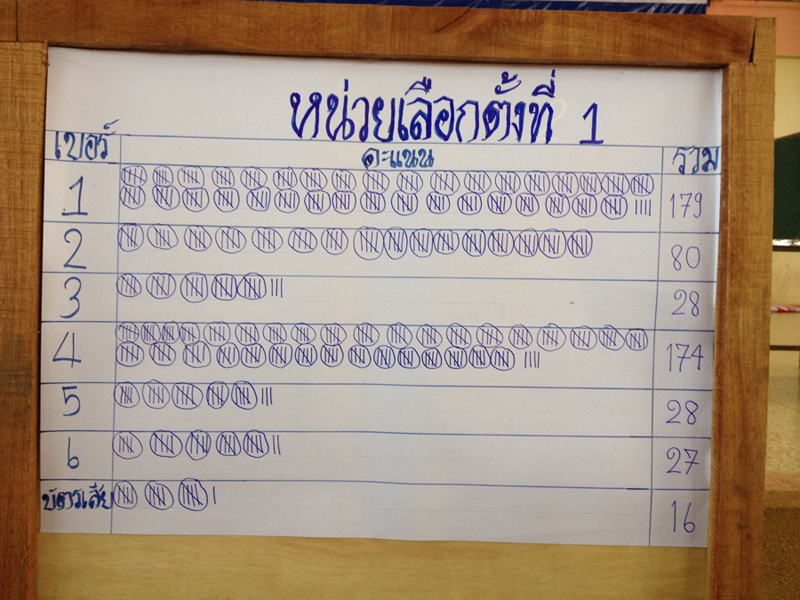 หน่วยเลือกตั้งที่ 1
เบอร์ คะแนน รวม
1 179
2 80
3 28
4 174
5 28
6 27
บัตรเสีย 16